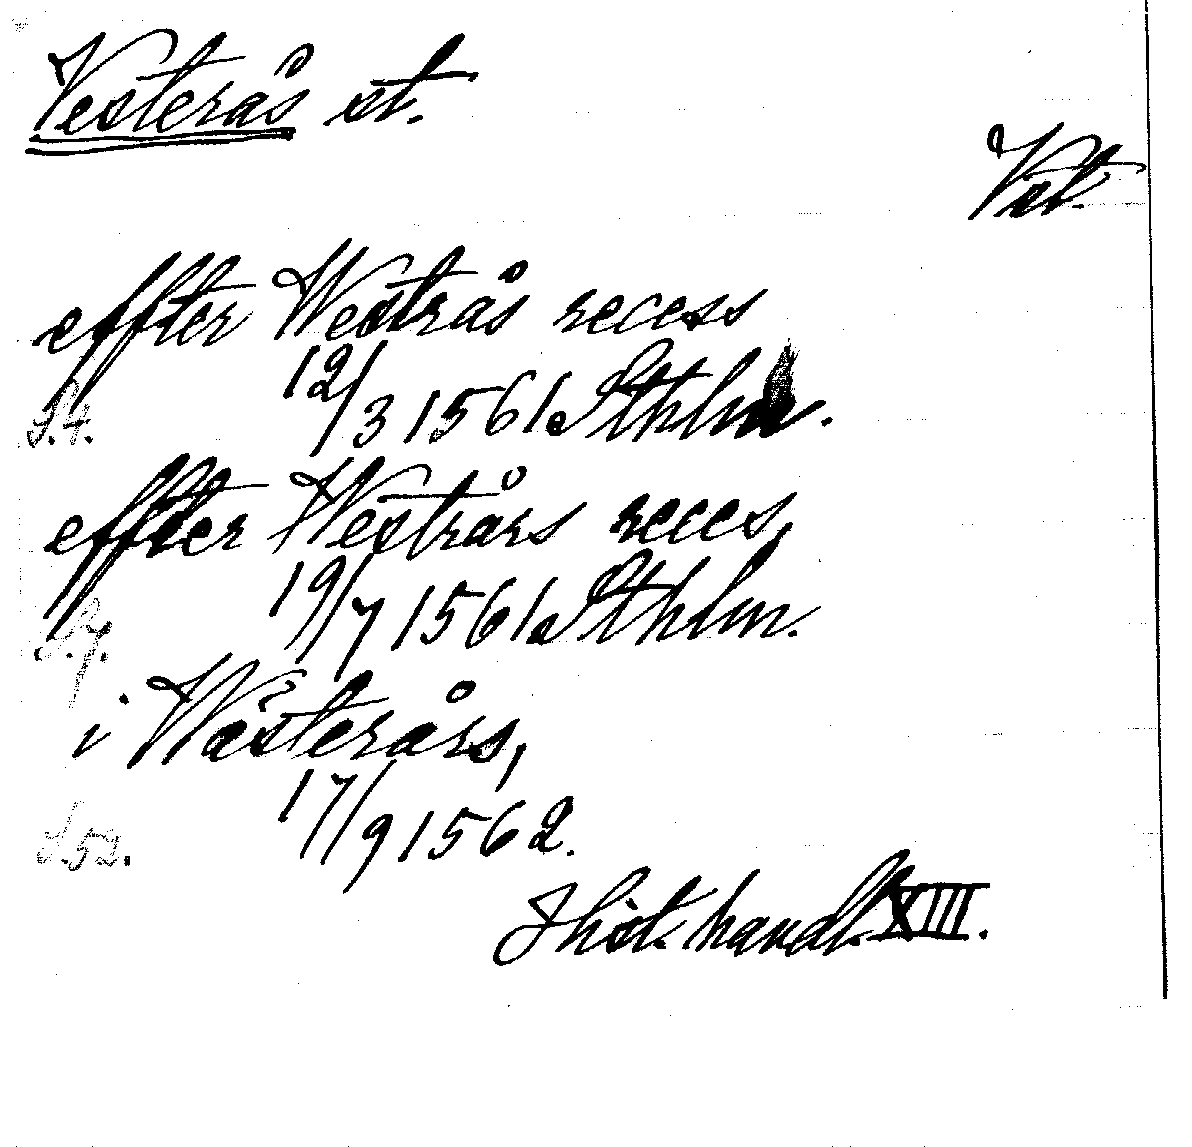 Vesterås st.
Vst.
effter Westrås recess
12/3 1561 Sthlm.
S.4.
effter Westrårs reces,
19/7 1561 Sthlm.
S.7.
i Wästerårs,
17/9 1562.
S.52.
Hist. handl. XIII.